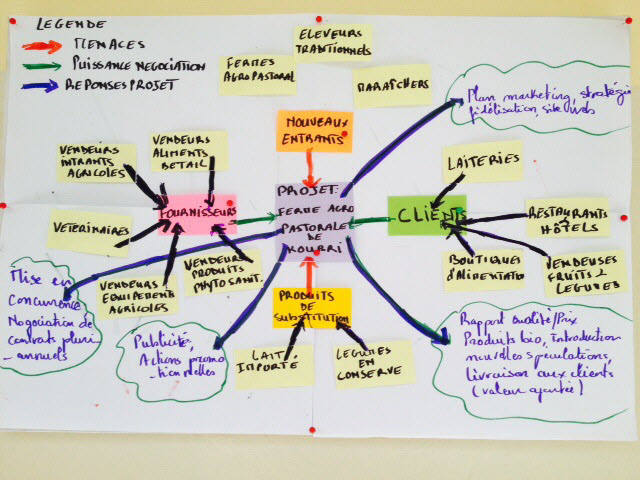 LEGENDE
MENACES
PUISSANCE NEGOCIATION
REPONSES PROJET
FERMES
AGROPASTORAL
ELEVEURS
TRADITIONNELS
MARAÎCHERS
Plan marketing, stratégie
fidélisation, site web
NOUVEAUX
ENTRANTS
VENDEURS
INTRANTS
AGRICOLES
VENDEURS
ALIMENTS
BETAIL
VETERINAIRES
FOURNISSEURS
VENDEURS
EQUIPEMENTS
AGRICOLES
VENDEURS
PRODUITS
PHYTOSANIT.
PROJET:
FERME AGRO
PASTORALE
DE
KOURRI
CLIENTS
LAITERIES
RESTAURANTS
HÔTELS
BOUTIQUES
D'ALIMENTATION
VENDEUSES
FRUITS &
LEGUMES
PRODUITS
DE
SUBSTITUTION
LAIT
IMPORTÉ
LEGUMES EN
CONSERVE
Mise en
Concurrence
Négociation de
contrats pluri
-annuels
Publicité,
Actions promo
-tionnelles
Rapport Qualité/Prix
Produits bio, Introduction
nouvelles spéculations,
Livraison aux clients
(valeur ajoutée)